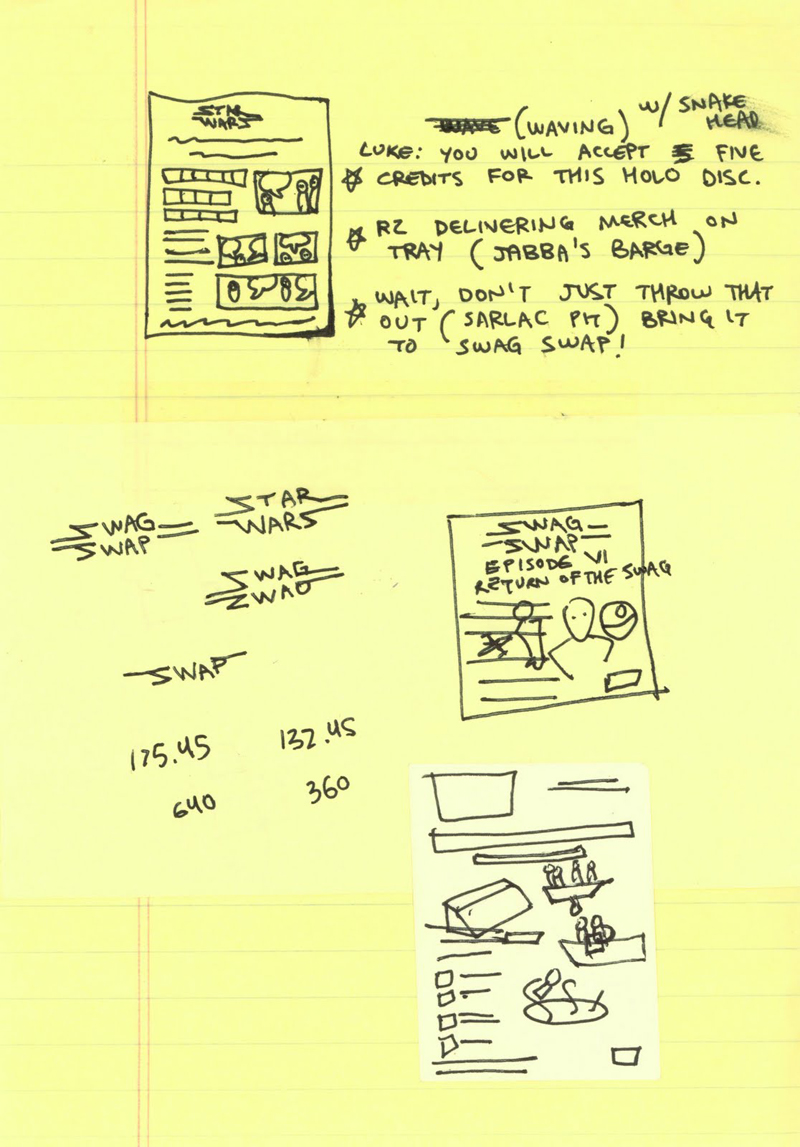 STAR
WARS
(WAVING) W/ SNAKE
HEAD
LUKE: YOU WILL ACCEPT FIVE
CREDITS FOR THIS HOLO DISC.
R2 DELIVERING MERCH ON
TRAY (JABBA'S BARGE)
WAIT, DON'T JUST THROW THAT
OUT (SARLAC PIT) BRING IT
TO SWAG SWAP!
SWAG
SWAP
STAR
WARS
SWAG
SWAP
SWAP
175.45 132.45
640 360
SWAG
SWAP
EPISODE VI
RETURN OF THE SWAG